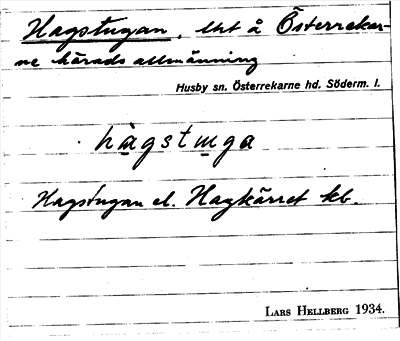 Hagstugan, lht å Österrekar-
ne härads allmänning
Husby sn. Österrekarne hd. Söderm. l.
hagstuga
Hagstugan el. Hagkärret kb.
LARS HELLBERG 1934.